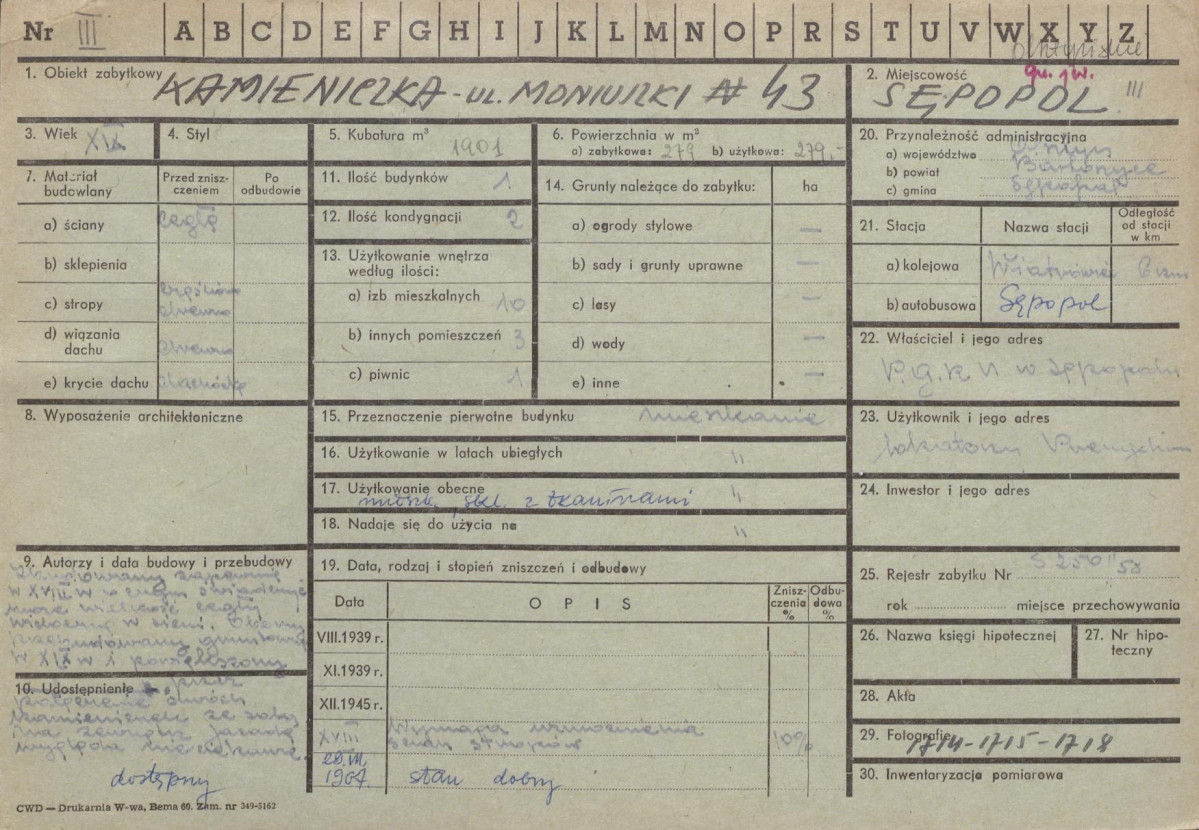 Nr III A B C D E F G H I J K L M N O P R S T U V W X Y Z
1. Obiekt zabytkowy KAMIENICZKA - UL. MONIUSZKI № 43
2. Miejscowość gw. jw. III
SĘPOPOL
3. Wiek XIX
4. Styl
5. Kubatura m³ 1901
6. Powierzchnia w m²
a) zabytkowa: 279 b) użytkowa: 279,-
20. Przynależność administracyjna
a) województwo Olsztyn
b) powiat Bartoszyce
c) gmina Sępopol
7. Materiał budowlany
Przed zniszczeniem
Po odbudowie
a) ściany cegła
b) sklepienia
c) stropy częściowo drewno
d) wiązania dachu drewno
e) krycie dachu
11. Ilość budynków 1
12. Ilość kondygnacji 2
13. Użytkowanie wnętrza
według ilości:
a) izb mieszkalnych 10
b) innych pomieszczeń 3
c) piwnic 1
14. Grunty należące do zabytku: ha
a) ogrody stylowe —
b) sady i grunty uprawne —
c) lasy —
d) wody —
e) inne —
21. Stacja
Nazwa stacji
Odległość od stacji w km
a) kolejowa
b) autobusowa Sępopol
22. Właściciel i jego adres
P.G.K. w Sępopolu
8. Wyposażenie architektoniczne
15. Przeznaczenie pierwotne budynku mieszkanie
16. Użytkowanie w latach ubiegłych "
17. Użytkowanie obecne "
skl. z tkaninami
18. Nadaje się do użycia na "
23. Użytkownik i jego adres
lokatorzy
24. Inwestor i jego adres
9. Autorzy i data budowy i przebudowy
Zbudowany zapewne
w XVIII w o czym świadczyć
może wielkość cegły
widocznej w sieni. Obecny
przebudowany gruntownie
w XIX w i powiększony
10. Udostępnienie przez
połączenie dwóch
kamieniczek ze sobą
na zewnątrz fasada
wygląda nieciekawie.
dostępny
19. Data, rodzaj i stopień zniszczeń i odbudowy
Data
OPIS
Zniszczenia %
Odbudowa %
VIII.1939 r.
XI.1939 r.
XII.1945 r.
XVIII Wymaga wzmocnienia 10%
belek stropów
1967. stan dobry
25. Rejestr zabytku Nr S 250/58
rok miejsce przechowywania
26. Nazwa księgi hipotecznej
27. Nr hipoteczny
28. Akta
29. Fotografie 1714-1715-1718
30. Inwentaryzacja pomiarowa
CWD — Drukarnia W-wa, Bema 60. Zam. nr 349-5162